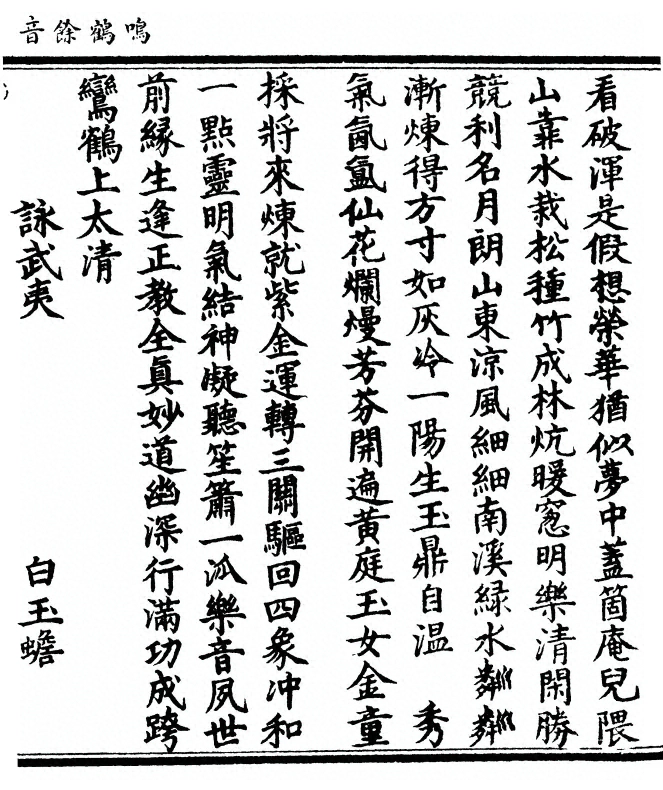 鳴鶴餘音
看破渾是假想榮華猶似夢中蓋箇庵兒隈
山靠水栽松種竹成林炕暖窓明樂清閑勝
競利名月朗山東涼風細細南溪緑水粼粼
漸煉得方寸如灰冷一陽生玉鼎自温　秀
氣氤氳仙花爛熳芳芬開遍黄庭玉女金童
採將來煉就紫金運轉三關驅回四象冲和
一點靈明氣結神凝聽笙簫一派樂音夙世
前縁生逢正教全眞妙道幽深行滿功成跨
鸞鶴上太清
詠武夷　白玉蟾